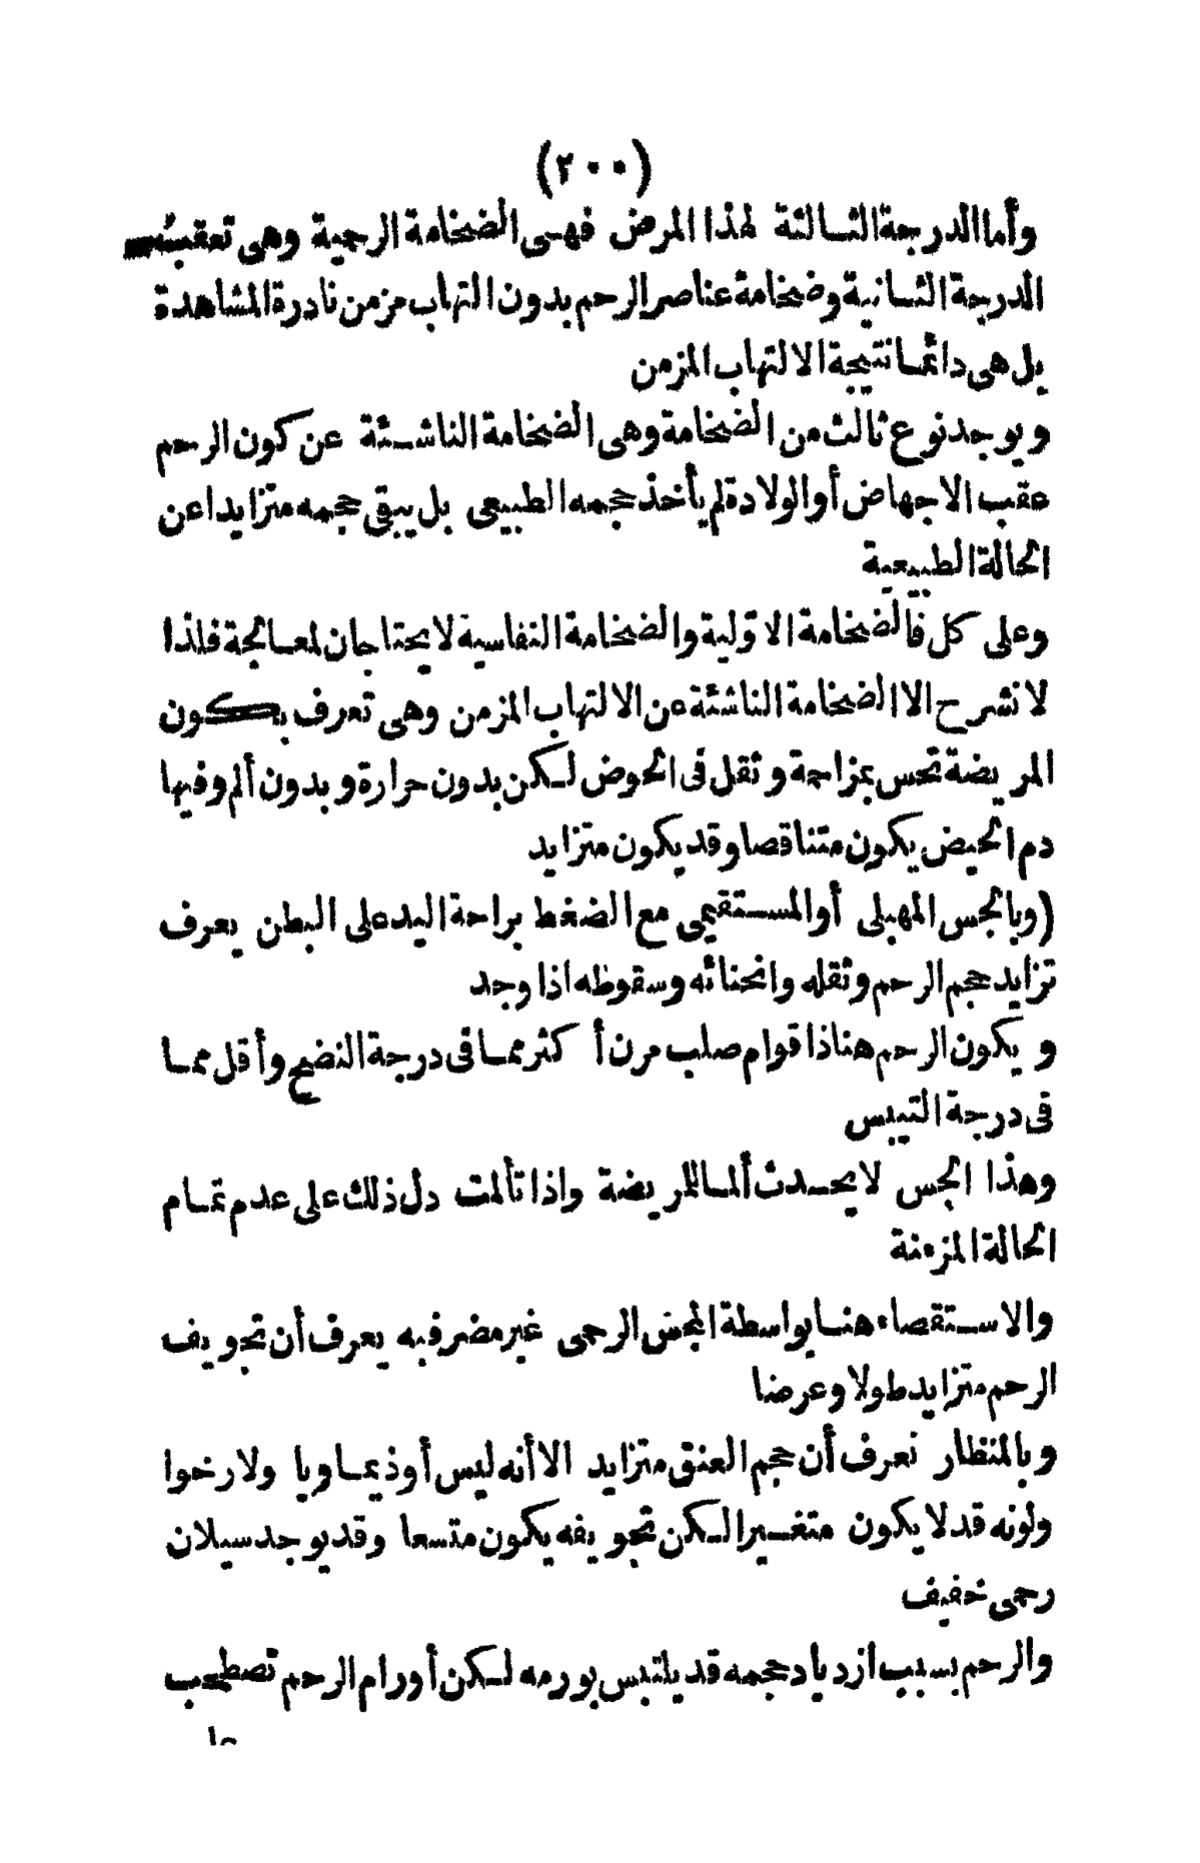 (٢٠٠)
وأما الدرجة الثالثة لهذا المرض فهى الضخامة الرحمية وهى تعقب
الدرجة الثانية وضخامة عناصر الرحم بدون التهاب مزمن نادرة المشاهدة
بل هى دائما نتيجة الالتهاب المزمن
ويوجد نوع ثالث من الضخامة وهى الضخامة الناشئة عن كون الرحم
عقب الاجهاض أو الولادة لم يأخذ حجمه الطبيعى بل يبقى حجمه متزايدا عن
الحالة الطبيعية
وعلى كل فالضخامة الاولية والضخامة النفاسية لا يحتاجان لمعالجة فلذا
لا نشرح الا الضخامة الناشئة عن الالتهاب المزمن وهى تعرف بكون
المريضة تحس بمزاحمة وثقل فى الحوض لكن بدون حرارة وبدون ألم وفيها
دم الحيض يكون متناقصا وقد يكون متزايد
(وبالجس المهبلى أو المستقيمى مع الضغط براحة اليد على البطن يعرف
تزايد حجم الرحم وثقله وانحنائه وسقوطه اذا وجد
ويكون الرحم هنا ذا قوام صلب مرن أكثر مما فى درجة النضح وأقل مما
فى درجة التيبس
وهذا الجس لا يحدث ألما للمريضة واذا تألمت دل ذلك على عدم تمام
الحالة المزمنة
والاستقصاء هنا بواسطة المجس الرحمى غير مضر فبه يعرف أن تجويف
الرحم متزايد طولا وعرضا
وبالمنظار نعرف أن حجم العنق متزايد الا أنه ليس أوذيماويا ولا رخوا
ولونه قد لا يكون متغيرا لكن تجويفه يكون متسعا وقد يوجد سيلان
رحمى خفيف
والرحم بسبب ازدياد حجمه قد يلتبس بورمه لكن أورام الرحم تصطحب